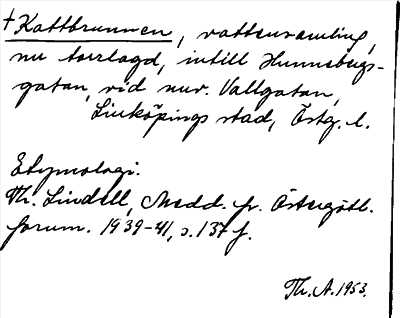 †Kattbrunnen, vattensamling,
nu torrlagd, intill Hunnebergs-
gatan, vid nuv. Vallgatan,
Linköpings stad, Östg. l.
Etymologi.
Th. Lindell, Medd. fr. Östergötl.
fornm. 1939-41, s. 137 f.
Th. A. 1953.